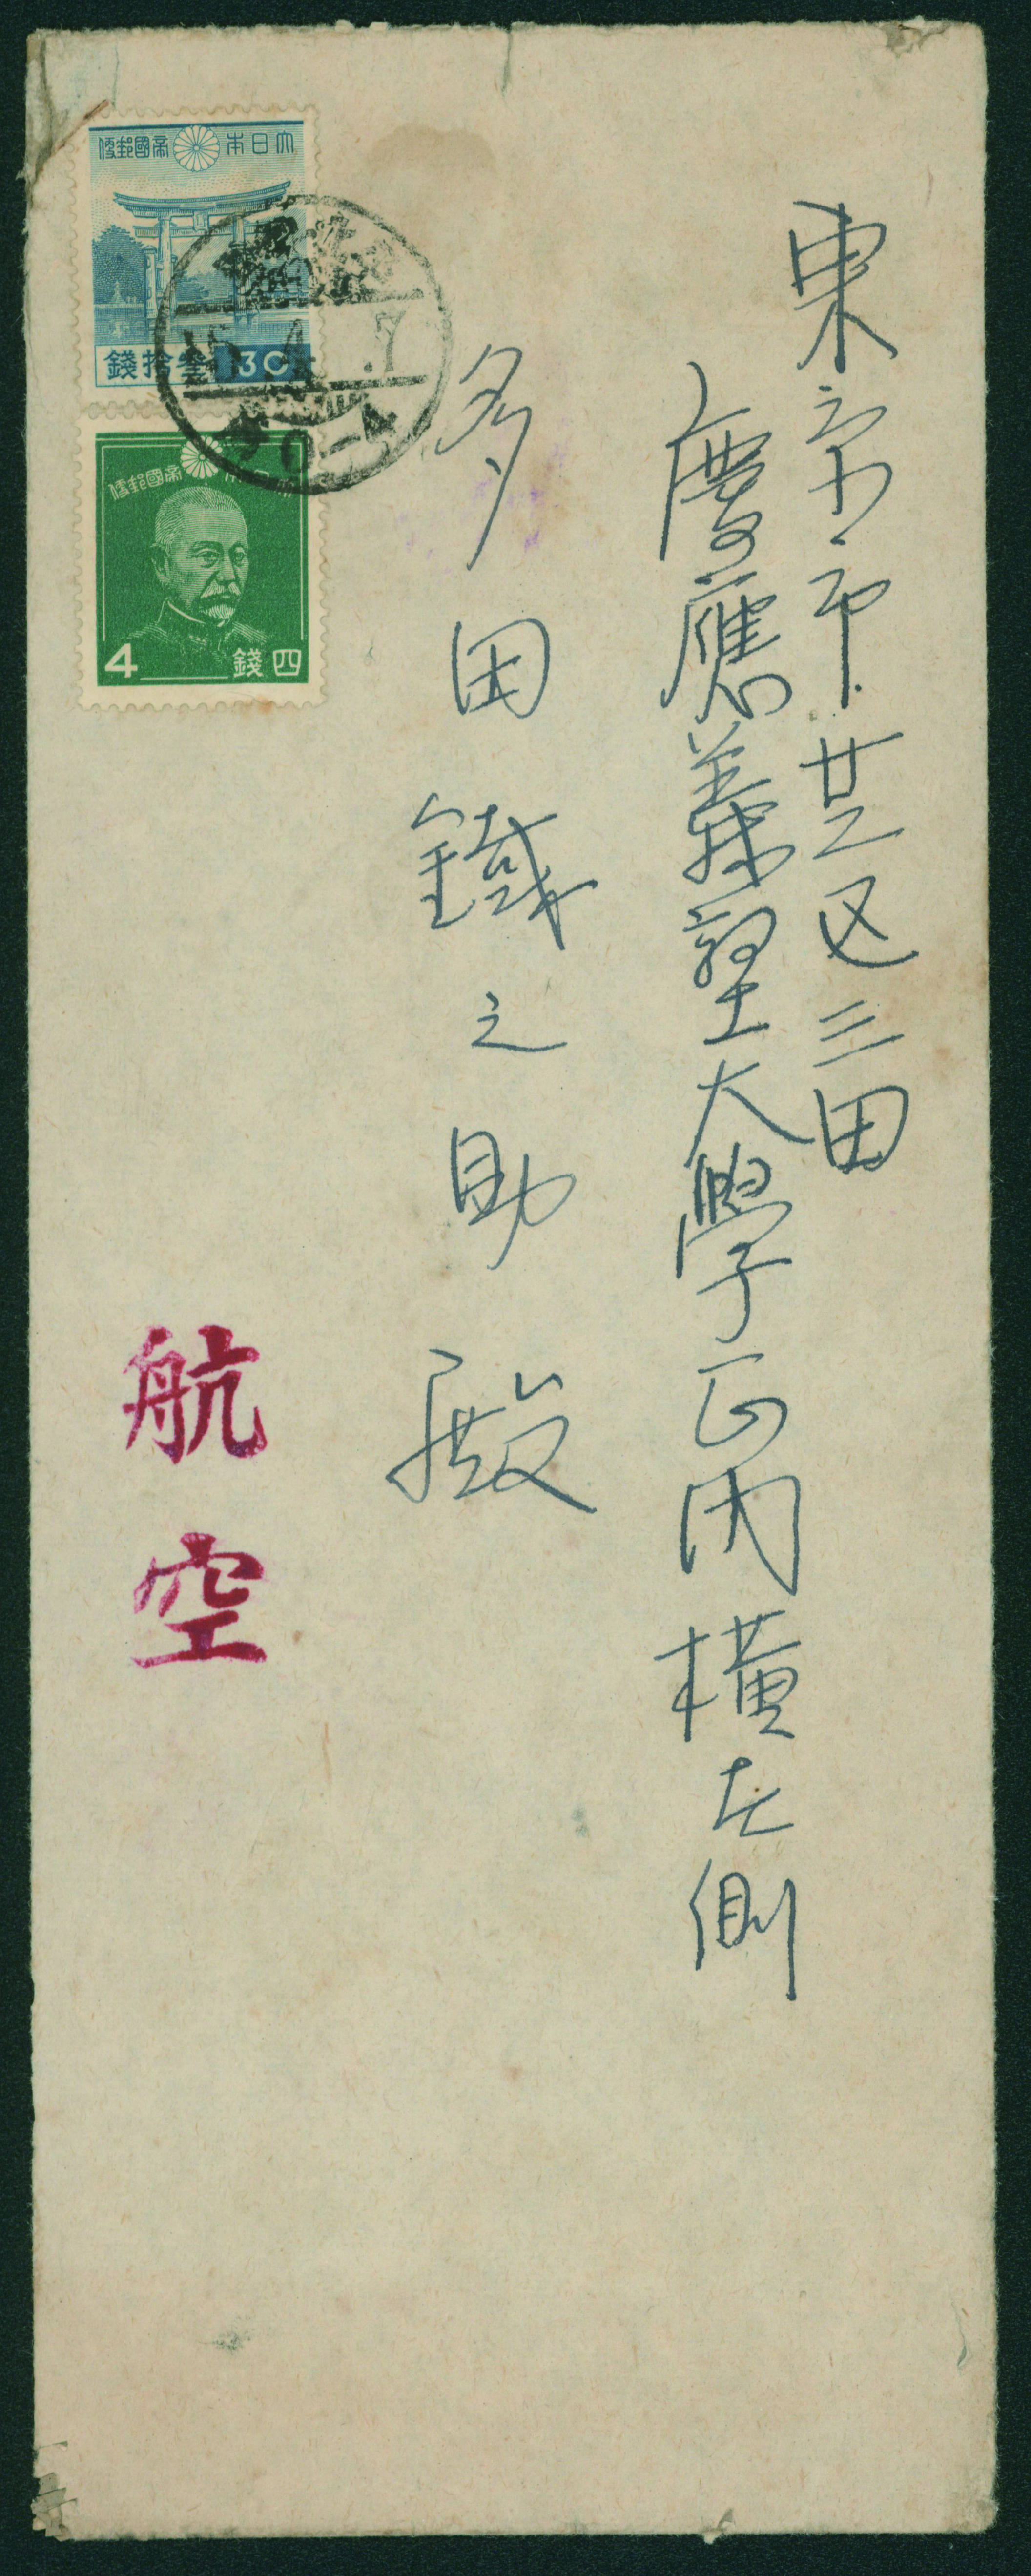 東京市芝区三田
慶應義塾大學正門横左側
多田鐵之助 殿
航空
大日本帝國郵便
錢拾叁 30
帝國郵便
4 錢四
15.4.7